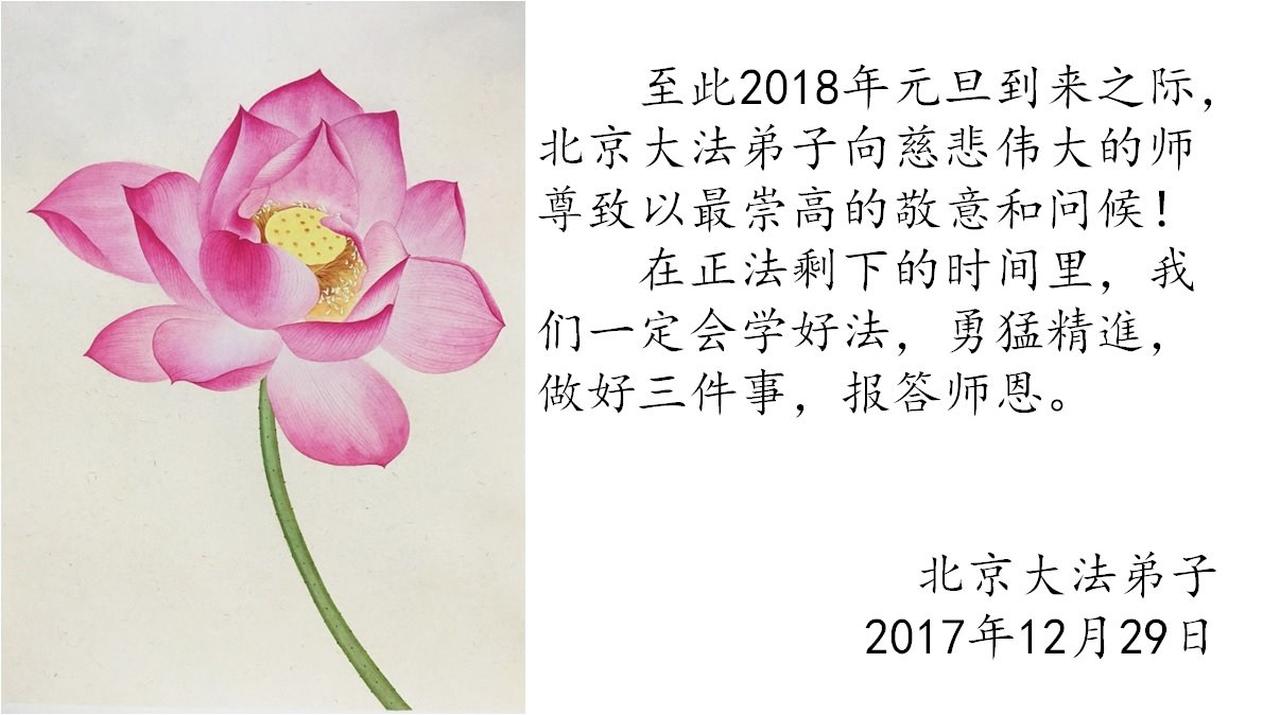 至此2018年元旦到来之际，
北京大法弟子向慈悲伟大的师
尊致以最崇高的敬意和问候！
在正法剩下的时间里，我
们一定会学好法，勇猛精進，
做好三件事，报答师恩。
北京大法弟子
2017年12月29日